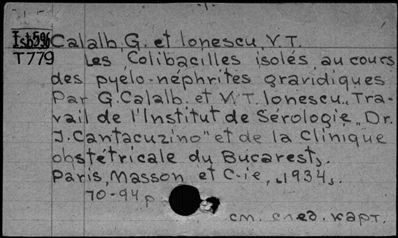 Calalb, G. et Ionescu, V.T.
T779
Les Colibacilles isolés au cours
des pyélo-néphrites gravidiques
Par G. Calalb. et V.T. Ionescu. "Tra-
vail de l'Institut de Sérologie "Dr.
I. Cantacuzino" et de la Clinique
obstétricale du Bucarest".
Paris, Masson et C-ie, "1934".
70-94 p
см. след. карт.